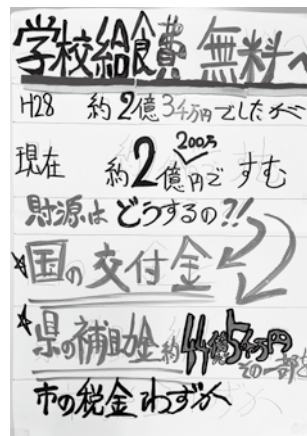 学校給食費 無料へ
H28 約2億3千万円でしたが
現在 約2億200万円で すむ
財源は どうするの?!
☆国の交付金
★県の補助金 約44億5千万円
その一部を
市の税金わずか